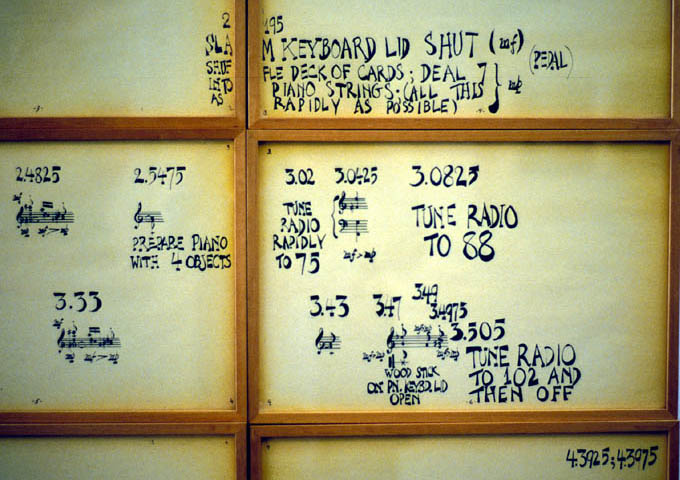 2
SLA
SHUF
INTO
AS
195
M KEYBOARD LID SHUT (mf)
FLE DECK OF CARDS; DEAL 7
PIANO STRINGS. (ALL THIS
RAPIDLY AS POSSIBLE)
mp
(PEDAL)
2.4825
2.5475
PREPARE PIANO
WITH 4 OBJECTS
3.33
3.02
TUNE
RADIO
RAPIDLY
TO 75
3.0425
mf>mp
3.0825
TUNE RADIO
TO 88
3.43
3.47
3.49
3.4975
WOOD STICK
ON PN. KEYBD. LID
OPEN
3.505
TUNE RADIO
TO 102 AND
THEN OFF
4.3925; 4.3975